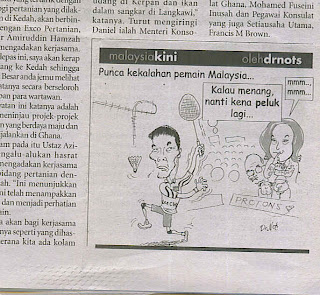 gi pertanian yang di-
di Kedah, akan berbin-
dengan Exco Pertanian,
Amiruddin Hamzah
mengadakan kerjasama.
lepas ini, saya akan kerap
ng ke Kedah sehingga
Besar anda jemu melihat
katanya secara berseloroh
pan para wartawan.
watan ini katanya adalah
meninjau projek-projek
n yang berdaya maju dan
jalankan di Ghana.
am pada itu Ustaz Azi-
ngalu-alukan hasrat
mengadakan kerjasama
bidang pertanian den-
ah. "Ini menunjukkan
ini telah menampakkan
dan menjadi perhatian
ain.
a akan bagi kerjasama
nya seperti yang dihas-
erana kita ada kolam
udang di Kerpan dan ikan
dalam sangkar di Langkawi,"
katanya. Turut mengiringi
Daniel ialah Menteri Konso-
lat Ghana, Mohamed Fuseini
Inusah dan Pegawai Konsulat
yang juga Setiausaha Utama,
Francis M Brown.
malaysiakini
oleh drnots
Punca kekalahan pemain Malaysia...
Kalau menang,
nanti kena peluk
lagi...
mmm..
mmm..
PROTONS